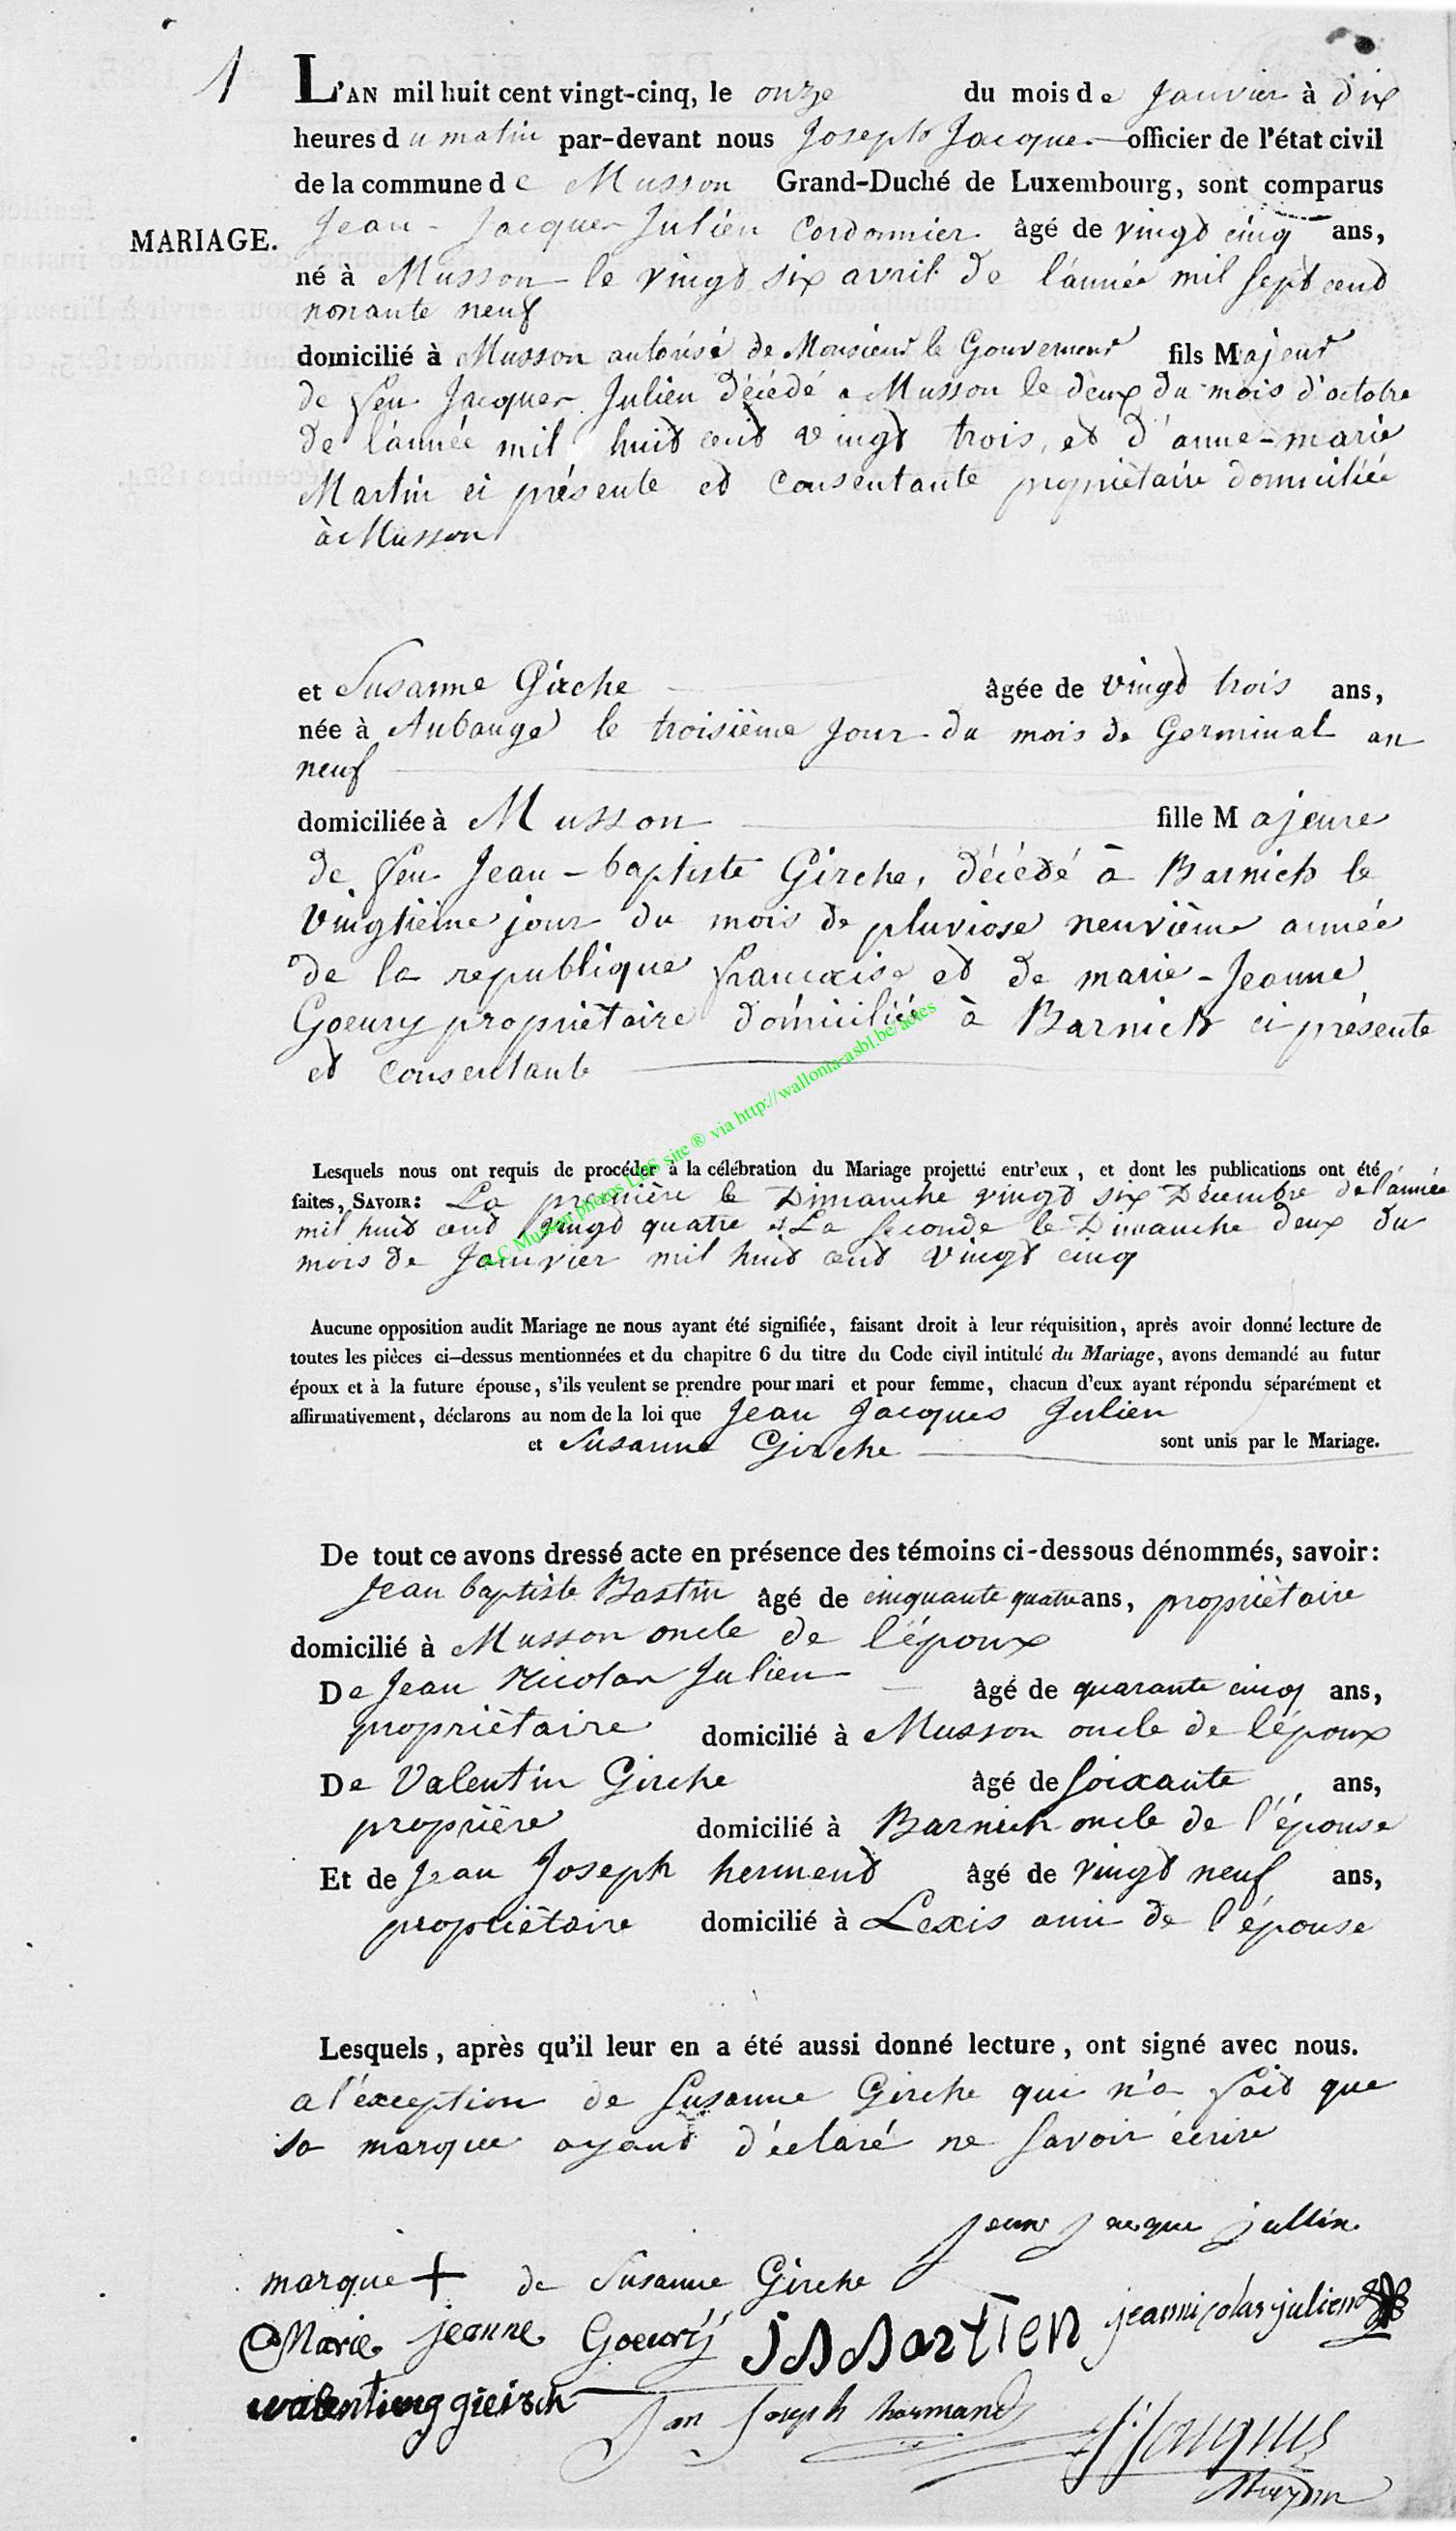 1
L'AN mil huit cent vingt-cinq, le onze du mois de Janvier à dix
heures du matin par-devant nous Joseph Jacques officier de l'état civil
de la commune de Musson Grand-Duché de Luxembourg, sont comparus
MARIAGE.
Jean-Jacques Julien Cordonnier âgé de vingt cinq ans,
né à Musson le vingt six avril de l'année mil sept cent
nonante neuf
domicilié à Musson autorisé de Monsieur le Gouverneur fils Majeur
de feu Jacques Julien décédé a Musson le deux du mois d'octobre
de l'année mil huit cent vingt trois, et d'anne-marie
Martin ci présente et consentante propriétaire domiciliée
à Musson
et Susanne Girche âgée de vingt trois ans,
née à Aubange le troisième jour du mois de Germinal an
neuf
domiciliée à Musson fille Majeure
de feu Jean-baptiste Girche, décédé à Barnich le
vingtième jour du mois de pluviose neuvième année
de la republique francaise et de marie-Jeanne
Goeury propriétaire domiciliée à Barnich ci présente
et consentante
Lesquels nous ont requis de procéder à la célébration du Mariage projetté entr'eux, et dont les publications ont été
faites, SAVOIR: La première le Dimanche vingt six Decembre de l'année
mil huit cent vingt quatre et La seconde le Dimanche deux du
mois de Janvier mil huit cent vingt cinq
A.C Musson photos LDS site ® via http://wallonia-asbl.be/actes
Aucune opposition audit Mariage ne nous ayant été signifiée, faisant droit à leur réquisition, après avoir donné lecture de
toutes les pièces ci-dessus mentionnées et du chapitre 6 du titre du Code civil intitulé du Mariage, avons demandé au futur
époux et à la future épouse, s'ils veulent se prendre pour mari et pour femme, chacun d'eux ayant répondu séparément et
affirmativement, déclarons au nom de la loi que Jean Jacques Julien
et Susanne Girche sont unis par le Mariage.
De tout ce avons dressé acte en présence des témoins ci-dessous dénommés, savoir:
Jean baptiste Bastin âgé de cinquante quatre ans, propriètaire
domicilié à Musson oncle de l'époux
De Jean Nicolas Julien âgé de quarante cinq ans,
propriètaire domicilié à Musson oncle de l'époux
De Valentin Girche âgé de soixante ans,
proprière domicilié à Barnich oncle de l'épouse
Et de Jean Joseph herment âgé de vingt neuf ans,
propriètaire domicilié à Lexis ami de l'épouse
Lesquels, après qu'il leur en a été aussi donné lecture, ont signé avec nous.
a l'éxception de Susanne Girche qui n'a fait que
sa marque ayant déclaré ne savoir écrire
jean jacque jullin
marque + de Susanne Girche
Marie jeanne Goeury
jeannicolas julien
valenting gieisch
Jan Joseph harmand
Jacques